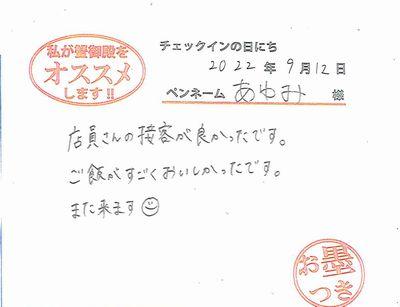 私が蟹御殿を
オススメ
します!!
チェックインの日にち
2022年9月12日
ペンネーム あゆみ 様
店員さんの接客が良かったです。
ご飯がすごくおいしかったです。
また来ます☺
お墨
つき